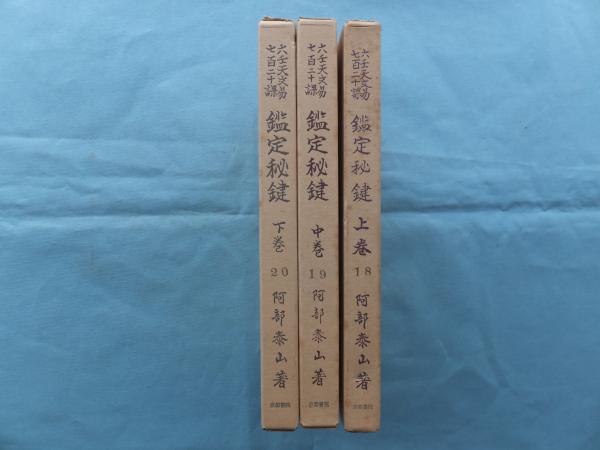 六壬天文易
七百二十課
鑑定秘鍵
上巻
18
阿部泰山著
京都書院
六壬天文易
七百二十課
鑑定秘鍵
中巻
19
阿部泰山著
京都書院
六壬天文易
七百二十課
鑑定秘鍵
下巻
20
阿部泰山著
京都書院